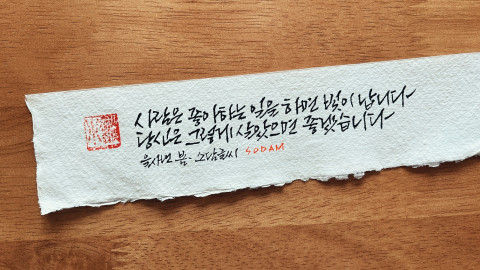 사람은 좋아하는 일을 하면 빛이 납니다
당신은 그렇게 살았으면 좋겠습니다
을사년 봄· 소담글씨 SODAM